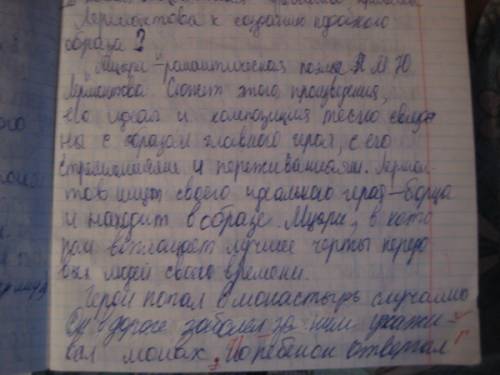 Лермонтова к созданию идейного
образа?
"Мцыри"-романтическая поэма М Ю
Лермонтова. Сюжет этого произведения,
его идея и композиция тесно связа
ны с образом главного героя, с его
стремлениями и переживаниями. Лермон-
тов ищет своего идеального героя-борца
и находит в образе Мцыри, в кото
ром воплощает лучшие черты передо
вых людей своего времени.
Герой попал в монастырь случайно
Он в дороге заболел за ним ухажи-
вал монах, Но ребенок отвергал